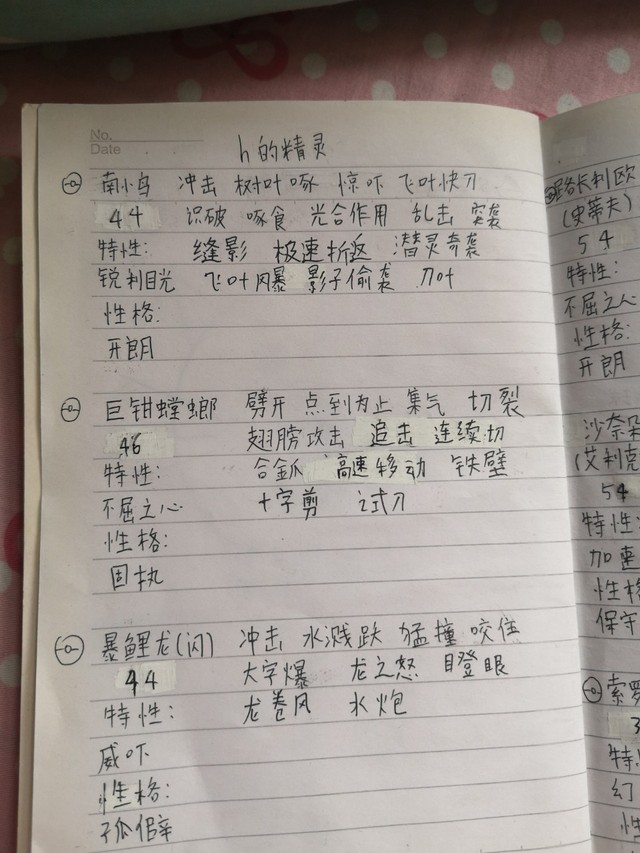 No.
Date
h的精灵
南小鸟 冲击 树叶啄 惊吓 飞叶快刀
44 识破 啄食 光合作用 乱击 突袭
特性: 缝影 极速折返 潜灵奇袭
锐利目光 飞叶风暴 影子偷袭 刀叶
性格:
开朗
巨钳螳螂 劈开 点到为止 集气 切裂
46 翅膀攻击 追击 连续切
特性: 合金爪 高速移动 铁壁
不屈之心 十字剪 试刀
性格:
固执
暴鲤龙(闪) 冲击 水溅跃 猛撞 咬住
44 大字爆 龙之怒 瞪眼
特性: 龙卷风 水炮
威吓
性格:
孤僻
路卡利欧
(史蒂夫)
54
特性:
不屈之心
性格:
开朗
沙奈朵
(艾利克
54
特性:
加速
性格
保守
索罗
3
特
幻
性